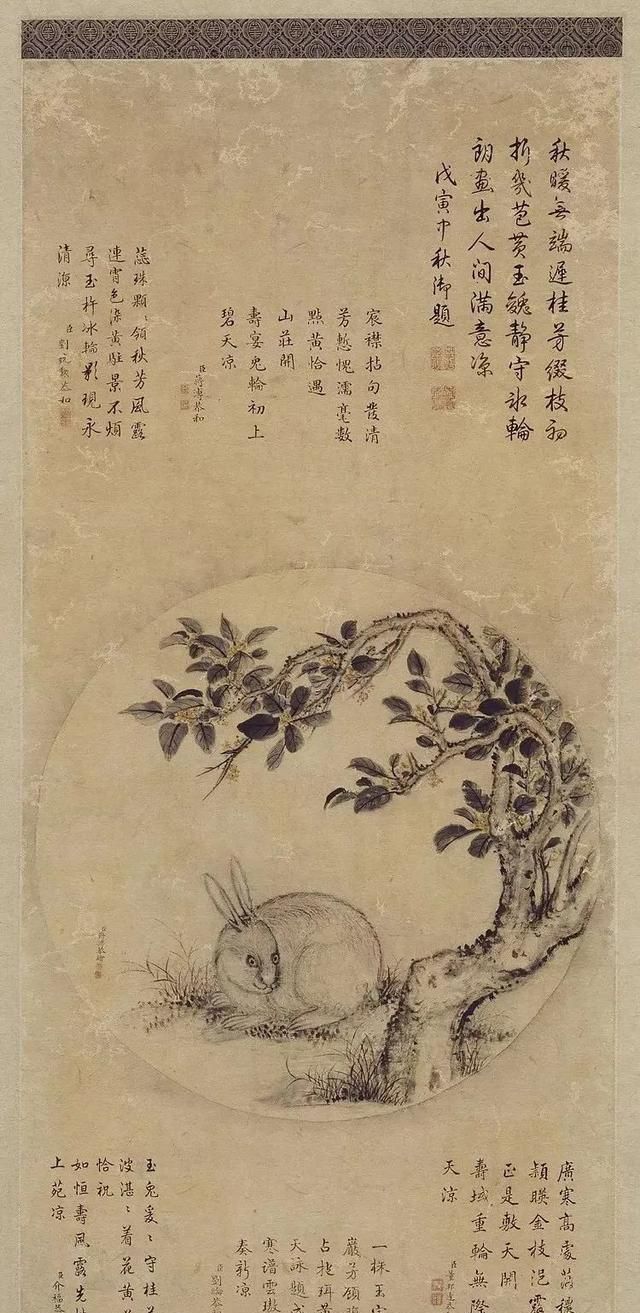 秋暖無端遲桂芳綴枝初
折幾苞黃玉㕙靜守冰輪
朗畫出人間滿意涼
戊寅中秋御題
宸襟拈句發清
芳慙愧濡毫數
點黃恰遇
山莊開
壽宴兔輪初上
碧天涼
臣蔣溥恭和
蕊珠顆〻領秋芳風露
連宵色染黃駐景不煩
尋玉杵冰輪影現永
清涼
臣劉統勲恭和
臣蔣溥恭繪
廣寒高處茁穠
穎暎金枝浥露
正是敷天開
壽域重輪無際
天涼
臣董邦達
一株玉宇
巖芳領
占兆珥黃
天詠題成
寒譜雲璈
奏新涼
臣劉綸恭
玉兔爰〻守桂
波湛〻着花黃
恰祝
如恒壽風露先
上苑涼
臣介福恭